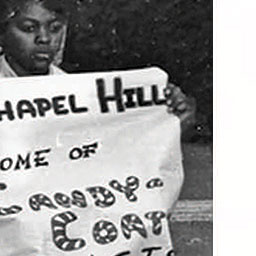 HAPEL HILL
OME OF
CANDY-
COAT